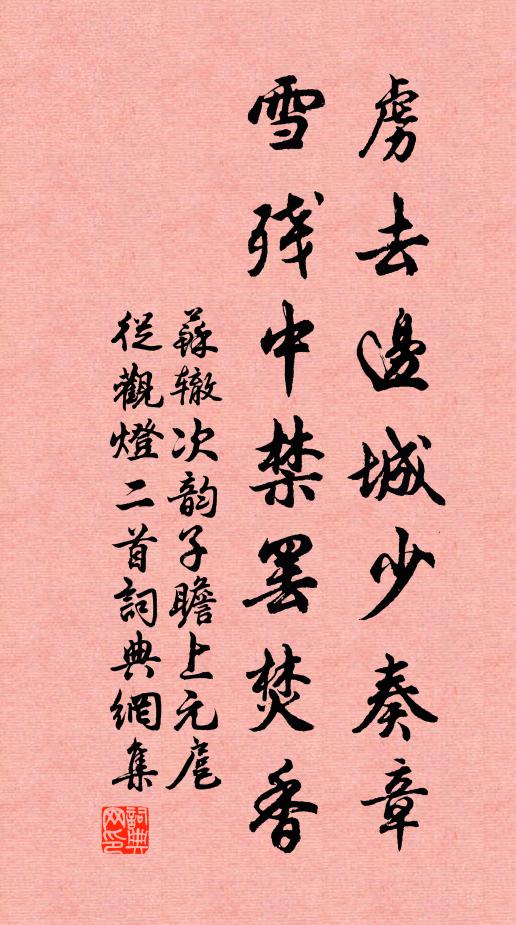 虜去邊城少奏章
雪残中禁罢焚香
蘇辙次韵子瞻上元扈
從觀燈二首詞典網集
詞典
网印